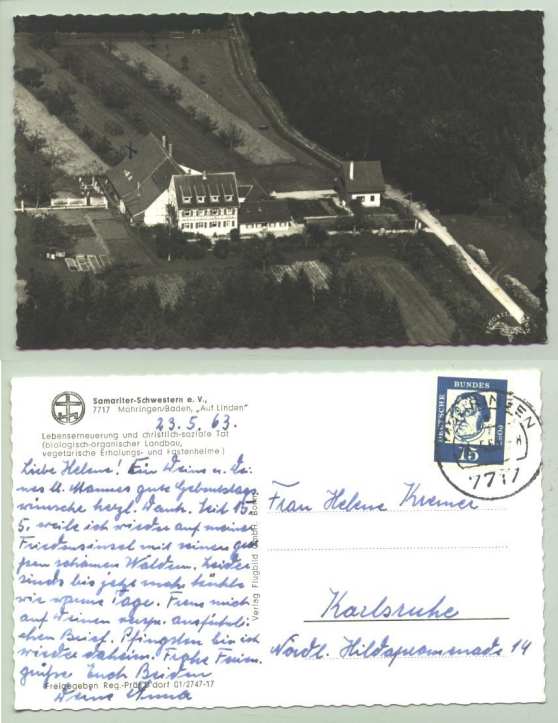 Samariter-Schwestern e. V.,
7717 Möhringen/Baden, „Auf Linden"
23.5.63.
Lebenserneuerung und christlich-soziale Tat
(biologisch-organischer Landbau,
vegetarische Erholungs- und Fastenheime)
Liebe Helene! Für Deine u. Dei-
nes l. Mannes gute Geburtstags-
wünsche herzl. Dank. Seit 15.
5. weile ich wieder auf meiner
Friedensinsel mit seinen gro-
ßen schönen Wäldern. Leider
sind's bis jetzt mehr kühle
wie warme Tage. Freue mich
auf Deinen verspr. ausführli-
chen Brief. Pfingsten bin ich
wieder daheim. Frohe Ferien
grüße Euch Beiden
Deine Anna
Freigegeben Reg.-Präs. D'dorf 01/2747-17
Verlag Flugbild GmbH. Bonn
DEUTSCHE BUNDESPOST
15
7717
Frau Helene Kremer
Karlsruhe
Nördl. Hildapromenade 14